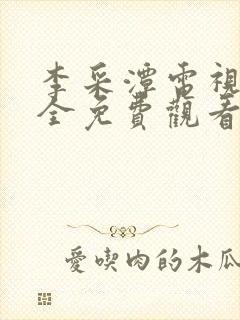 李采潭電視
全免費觀看
愛喫肉的木瓜